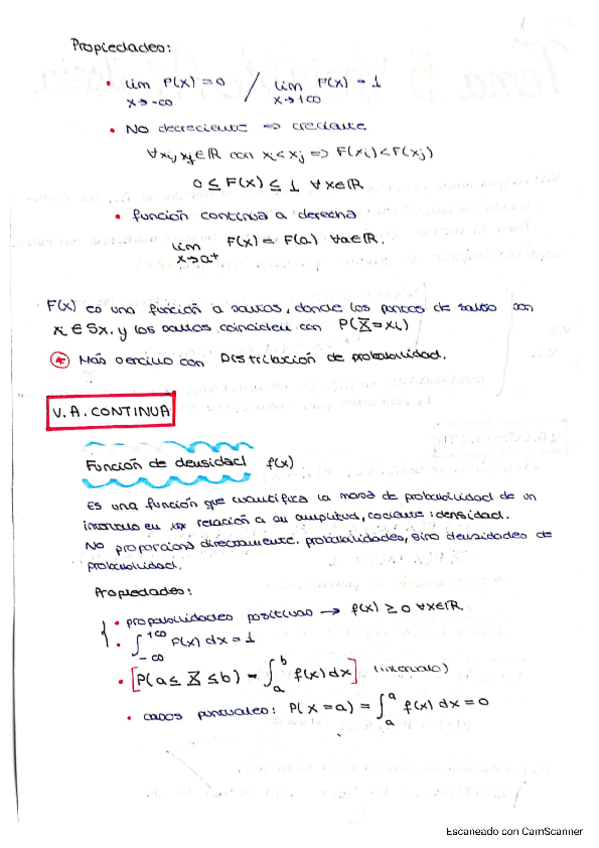 Propiedades:
• lim F(x) = 0 / lim F(x) = 1
x→-∞ x→+∞
• No decreciente ⇒ creciente
∀xi, xj ∈ ℝ con xi < xj ⇒ F(xi) < F(xj)
0 ≤ F(x) ≤ 1 ∀x∈ℝ
• función continua a derecha
lim F(x) = F(a) ∀a∈ℝ.
x→a⁺
F(x) es una función a saltos, donde los puntos de salto son
xi ∈ Sx. y los saltos coinciden con P(X=xi)
* Más sencillo con Distribución de probabilidad.
V.A. CONTINUA
Función de densidad f(x)
Es una función que cuantifica la masa de probabilidad de un
intervalo en relación a su amplitud, cociente: densidad.
No proporciona directamente probabilidades, sino densidades de
probabilidad.
Propiedades:
• probabilidades positivas → f(x) ≥ 0 ∀x∈ℝ
• ∫ +∞ -∞ F(x) dx = 1
• [P(a ≤ X ≤ b) = ∫ b a f(x) dx] (intervalo)
• casos puntuales: P(X = a) = ∫ a a f(x) dx = 0
Escaneado con CamScanner